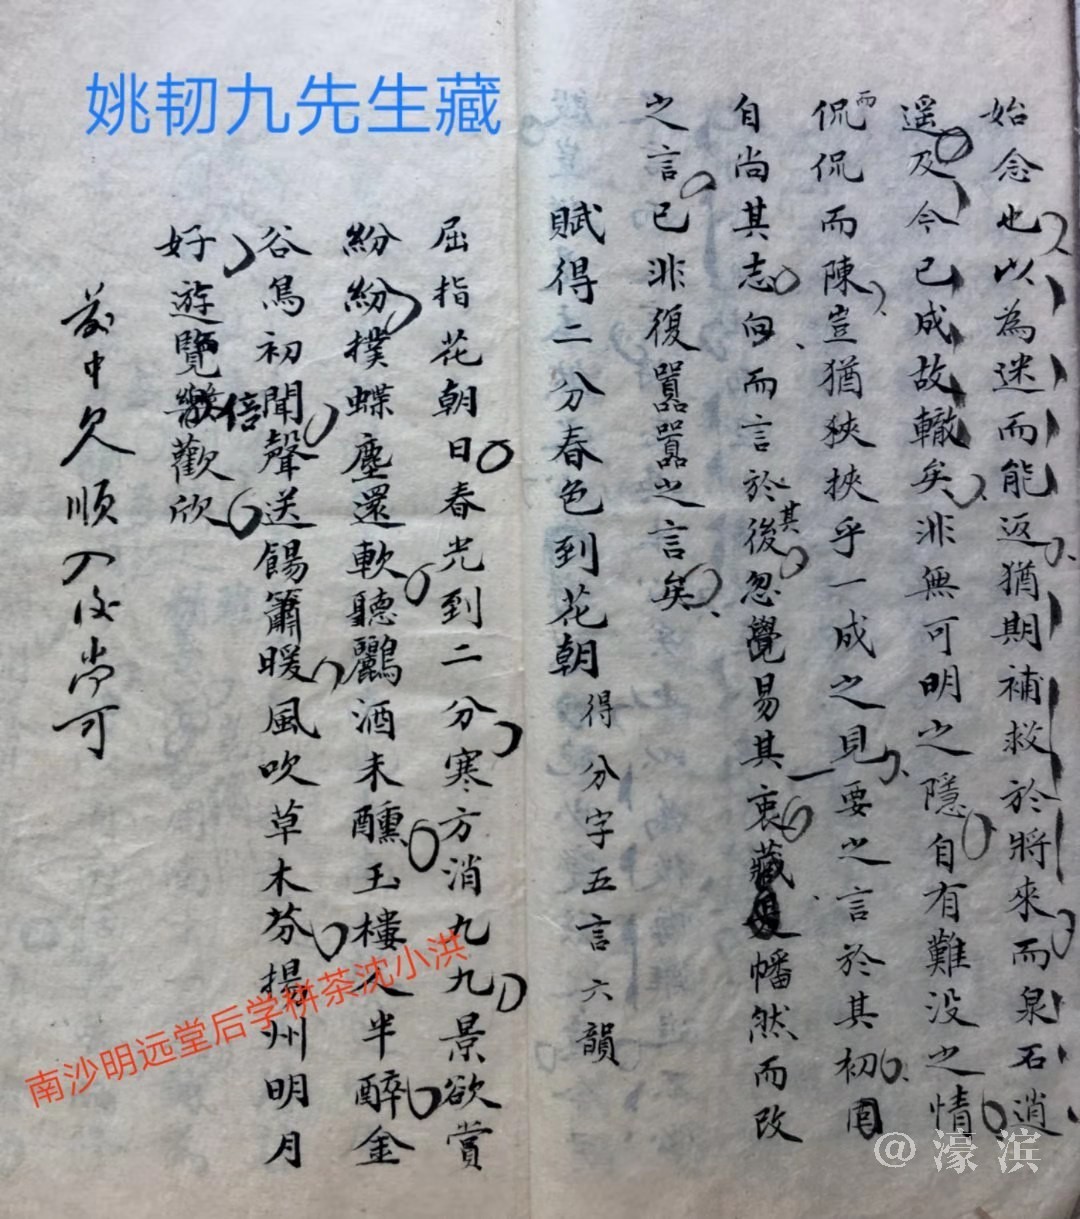 姚韧九先生藏
始念也以為迷而能返猶期補救於將來而泉石逍
遥及今已成故轍矣非無可明之隱自有難没之情
而
侃侃而陳豈猶狹挾乎一成之見要之言於其初固
自尚其志向而言於後忽覺易其衷藏幡然而改
其
之言已非復囂囂之言矣
賦得二分春色到花朝 得分字五言六韻
屈指花朝日春光到二分寒方消九九景欲賞
紛紛撲蝶塵還軟聽鸝酒未醺玉樓人半醉金
谷鳥初聞聲送餳簫暖風吹草木芬揚州明月
好遊覽倍歡欣
中欠順入後尚可
南沙明远堂后学栟茶沈小洪
@濠滨